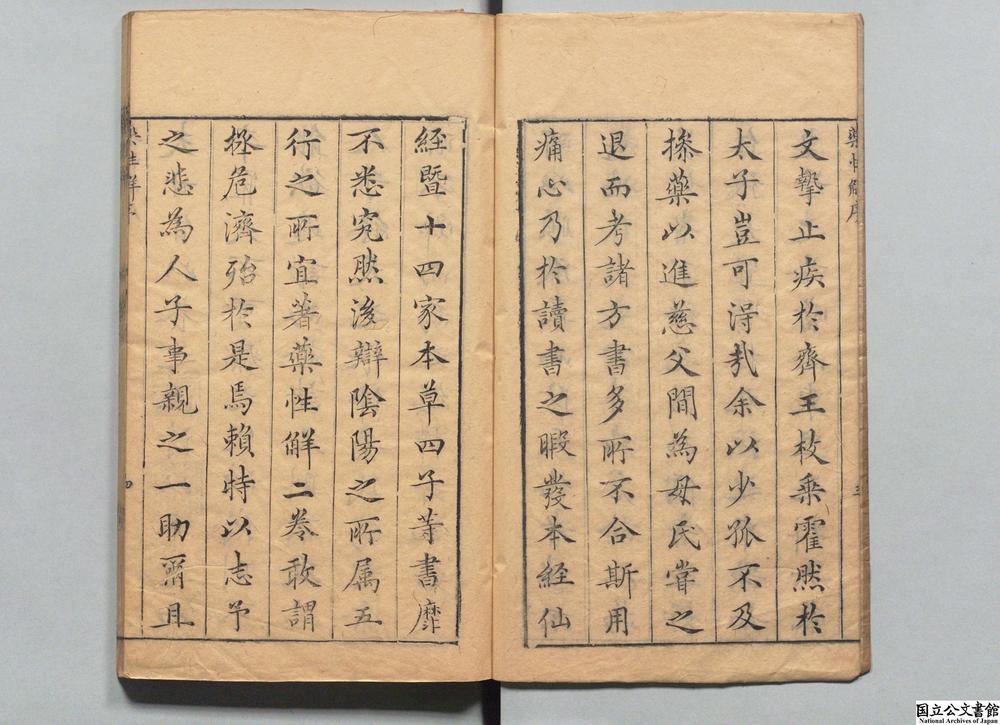 藥性解序
文摯止疾於齊王枚乘霍然於
太子豈可得㢤余以少孤不及
操藥以進慈父間為母氏甞之
退而考諸方書多所不合斯用
痛心乃於讀書之暇發本經仙
經暨十四家本草四子等書靡
不悉究然後辯陰陽之所属五
行之所宜著藥性解二卷敢謂
拯危濟殆於是焉賴特以志予
之悲為人子事親之一助爾且
四
国立公文書館
National Archives of Japan